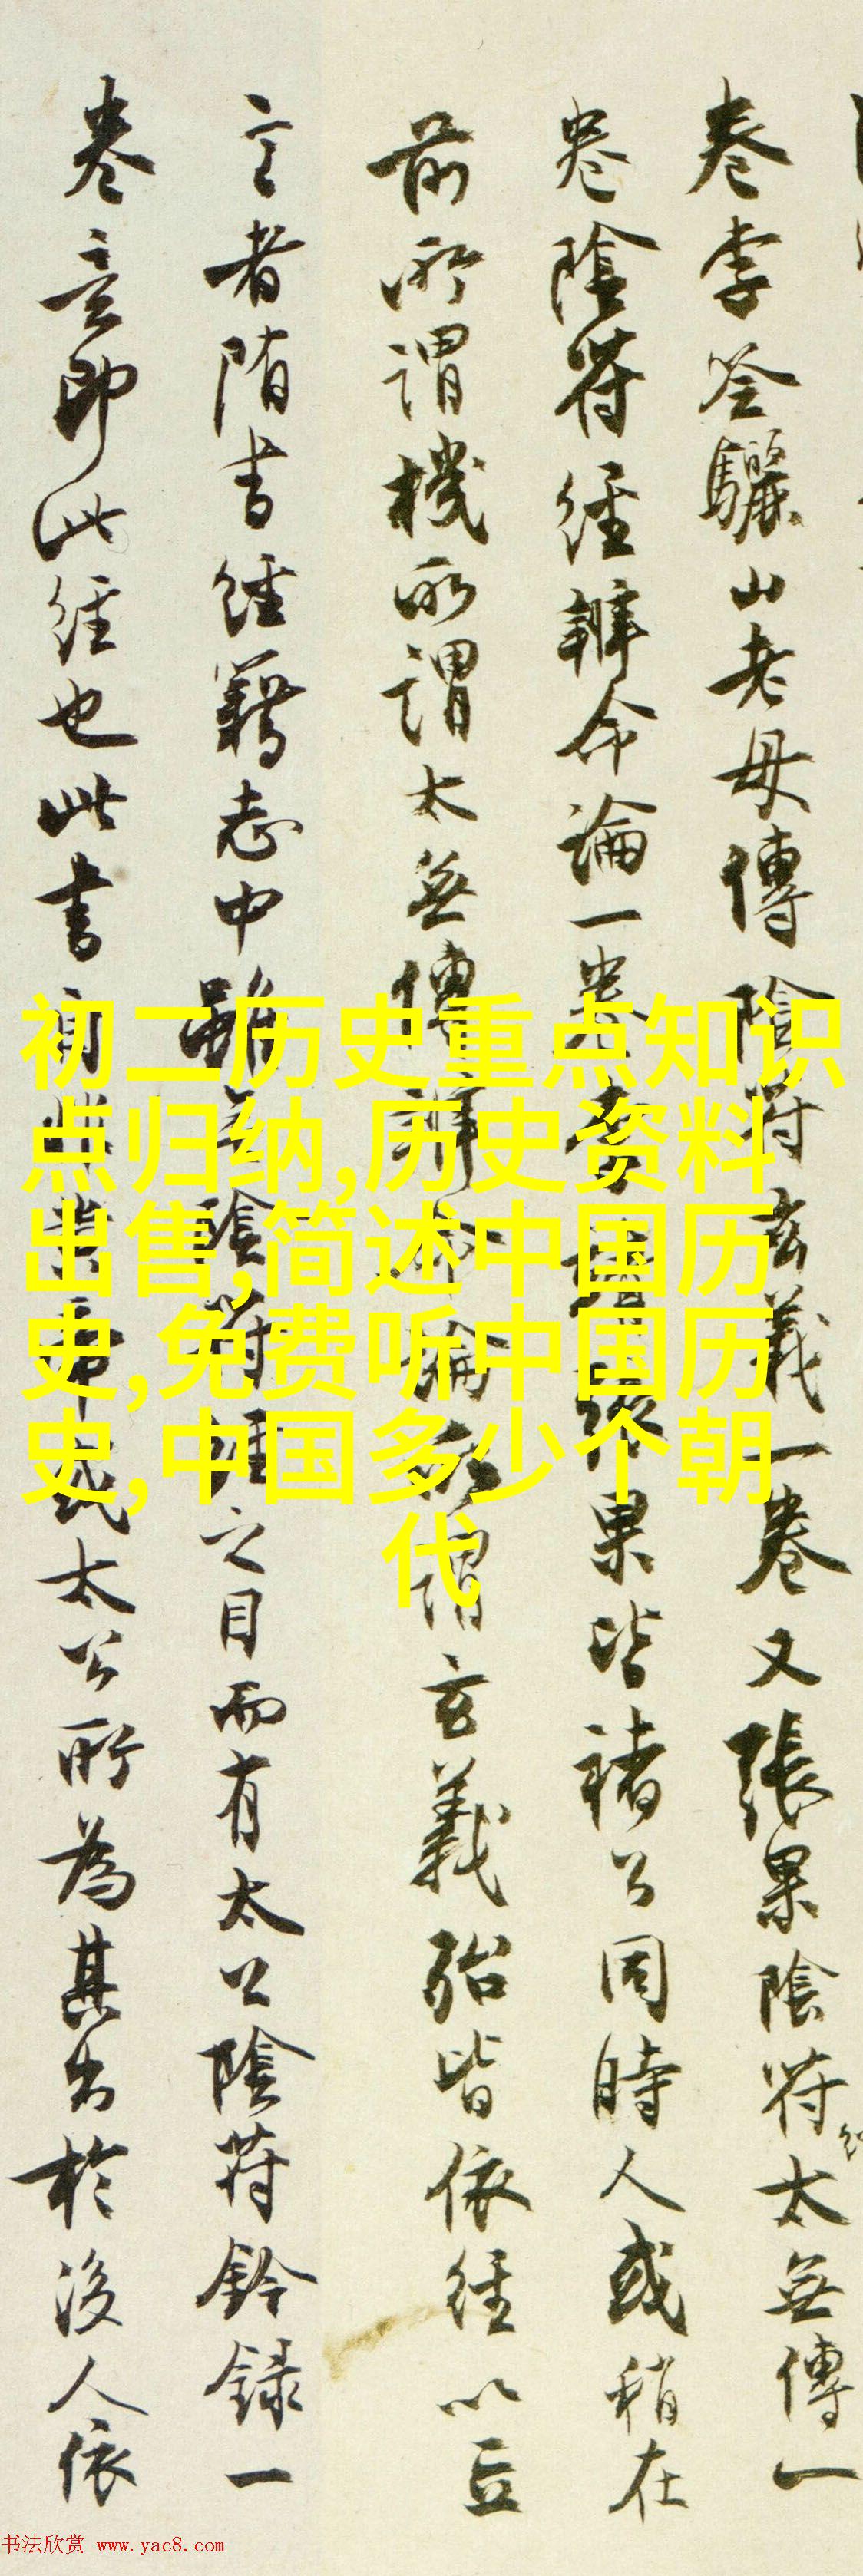 卷李筌驪山老母傳陰符玄義一卷又張果陰符太無傳一
卷陰符經辨命論一卷張果皆褚公同時人或稍在
前所謂機所謂太無傳辨命論所謂玄義殆皆依經以立
言者隋書經籍志中雖無陰符經之目而有太公陰符鈐録一
卷意即此經也此書黃帝或太公所為其出於後人依
初二历史重点知识
点归纳,历史资料
出售,简述中国历
史,免费听中国历
史,中国多少个朝
代
书法欣赏 www.yac8.com